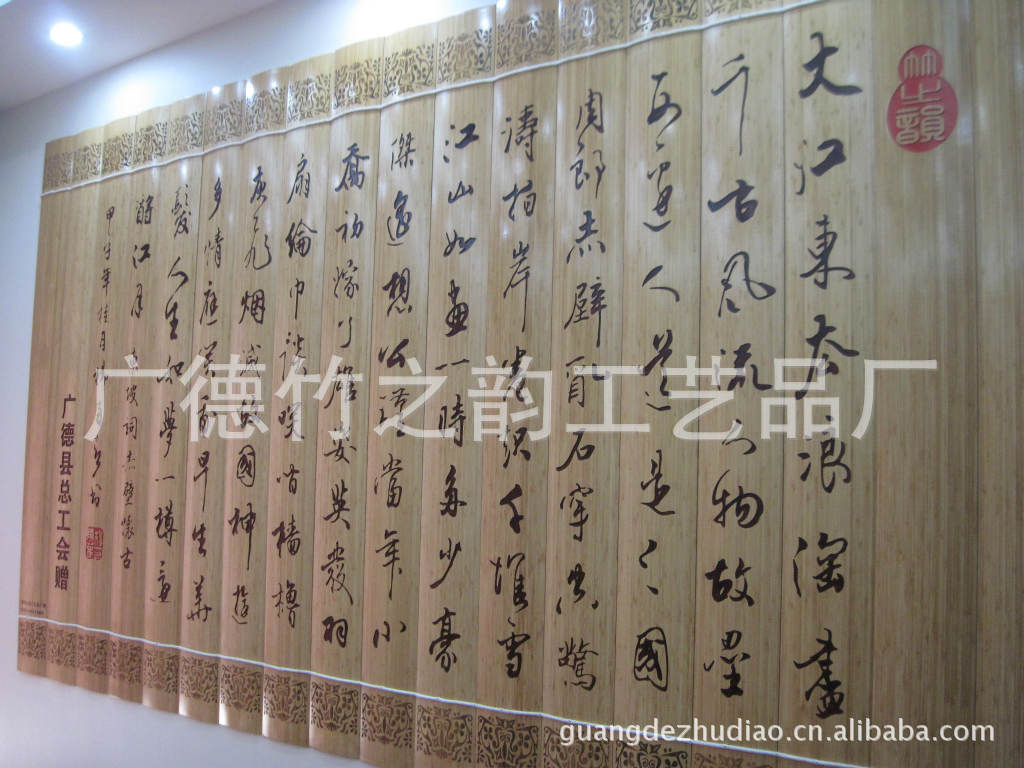 竹之韻
大江東去浪淘盡
千古風流人物故壘
西邊人道是三國
周郎赤壁亂石穿空驚
濤拍岸卷起千堆雪
江山如畫一時多少豪
傑遙想公瑾當年小
喬初嫁了雄姿英發羽
扇綸巾談笑間檣櫓
灰飛烟滅故國神遊
多情應笑我早生華
髮人生如夢一樽還
酹江月 東坡詞赤壁懷古
甲午年桂月 書
广德县总工会赠
广德竹之韵工艺品厂
guangdezhudiao.cn.alibaba.com